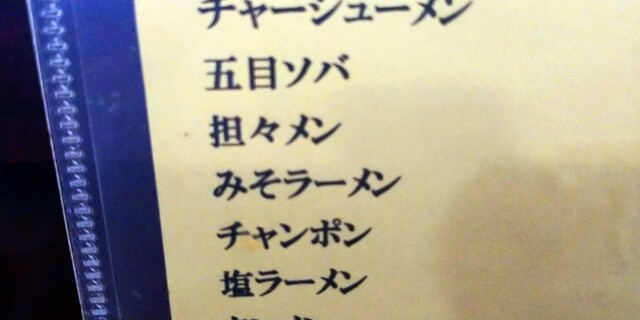 チャーシューメン
五目ソバ
担々メン
みそラーメン
チャンポン
塩ラーメン